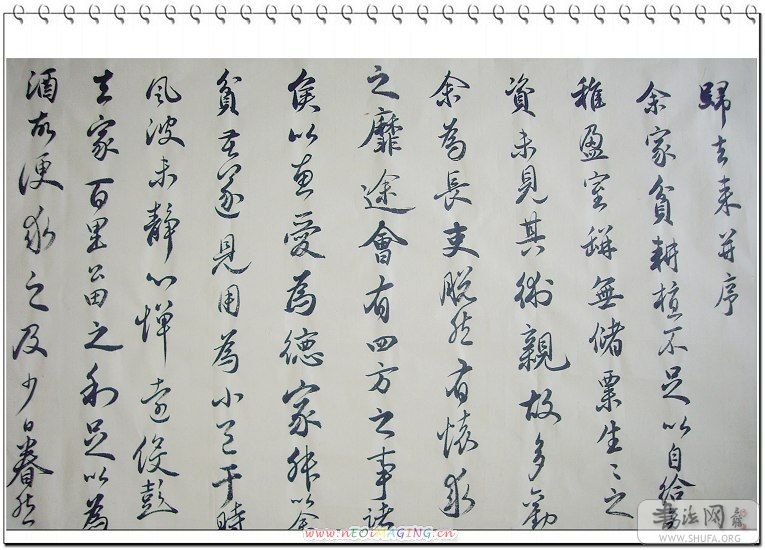 歸去来并序
余家貧耕植不足以自給
稚盈室缾無儲粟生〻之
資未見其術親故多勸
余為長吏脫然有懷求
之靡途會有四方之事諸
侯以惠愛為德家叔以余
貧苦遂見用為小邑于時
風波未靜心憚遠役彭
去家百里公田之利足以為
酒故便求之及少日眷然
书法网
WWW.SHUFA.ORG
www.nEOiMAGING.cn